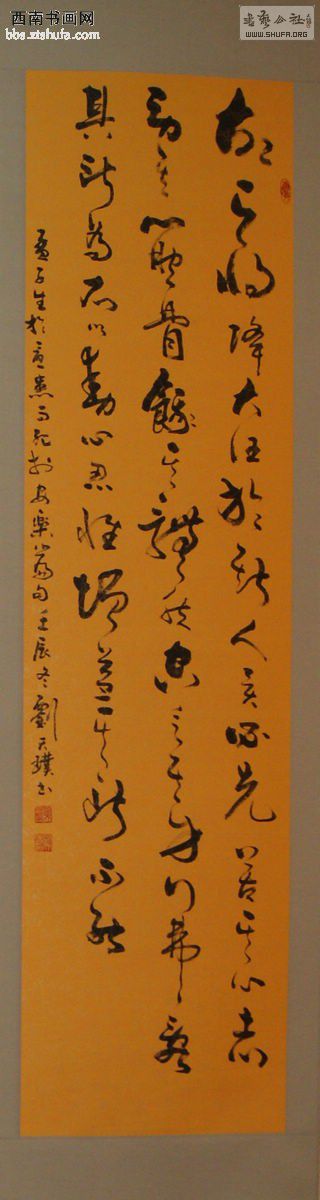 西南书画网
bbs.ztshufa.com
書藝公社
WWW.SHUFA.ORG
故天將降大任於斯人也必先苦其心志
勞其筋骨餓其體膚空乏其身行弗亂
其所為所以動心忍性增益其所不能
孟子生於憂患而死於安樂篇句壬辰冬劉天璞書